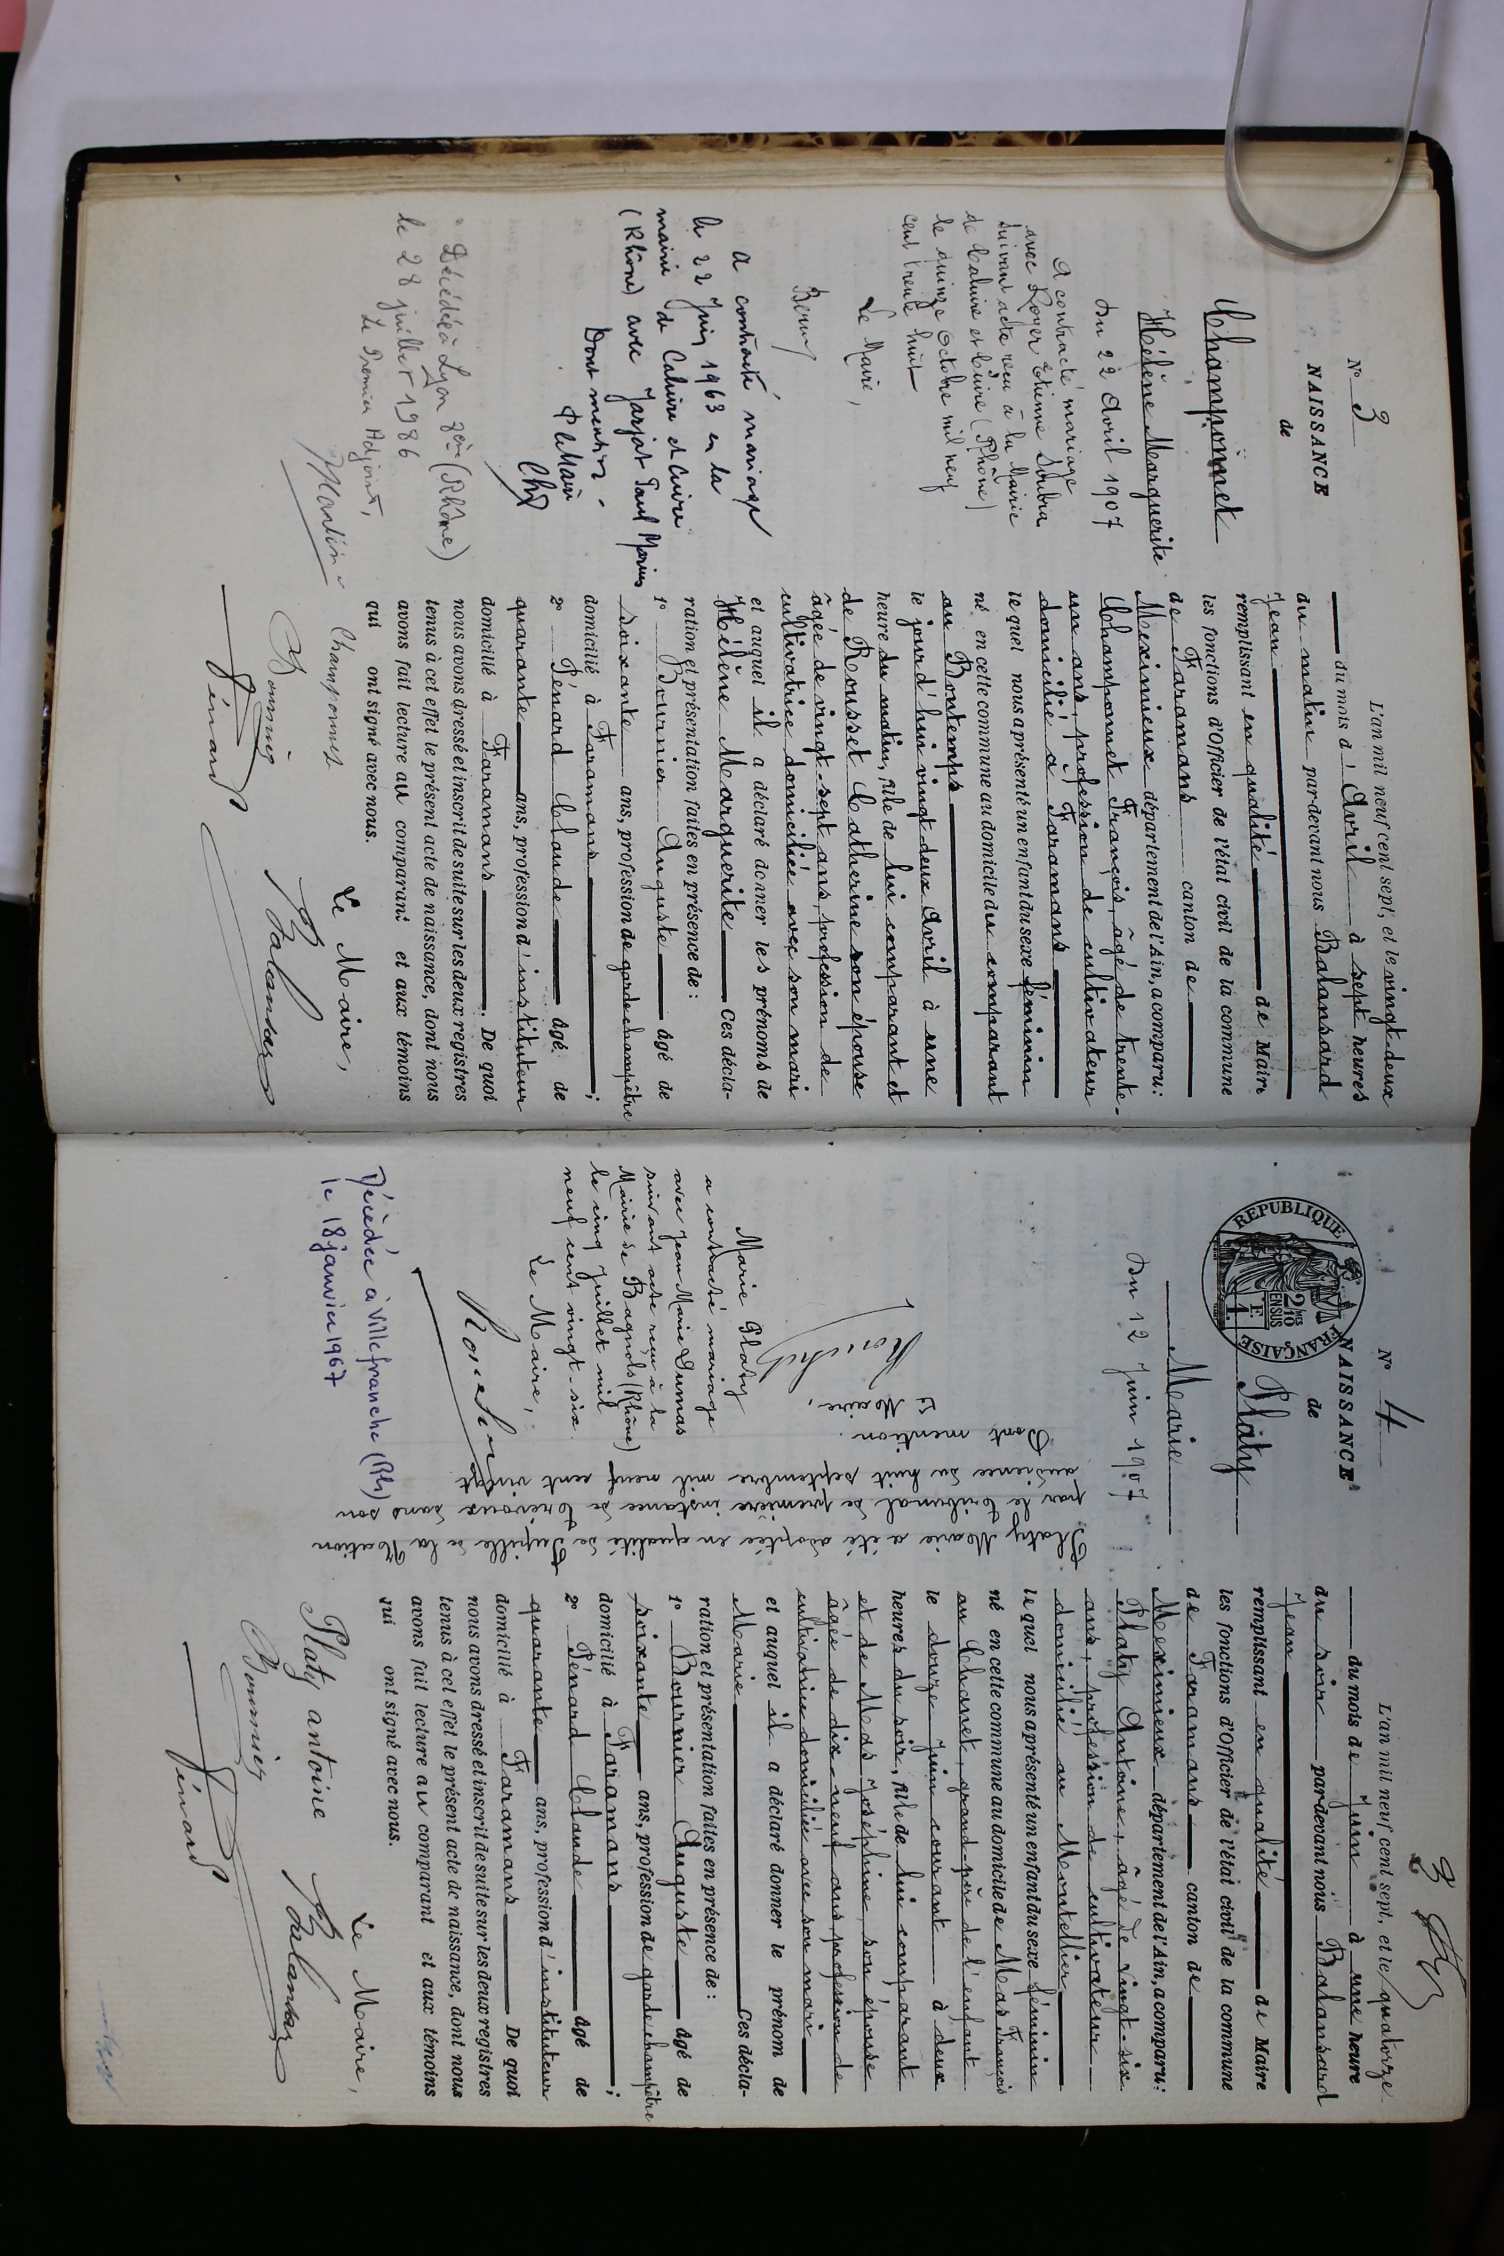 N° 3
NAISSANCE
de
Champonnet
Hélène Marguerite
Du 22 Avril 1907
A contracté mariage
avec Roger Etienne Soubra
suivant acte reçu à la Mairie
de Caluire et Cuire (Rhône)
le quinze Octobre mil neuf
cent trente huit
Le Maire,
A contracté mariage
le 22 Juin 1963 en la
mairie de Caluire et Cuire
(Rhône) avec Jarjat Paul Marius
Dont mention.
P le Maire
Décédée à Lyon 8ème (Rhône)
le 28 juillet 1986
Le Premier Adjoint,
L'an mil neuf cent sept, et le vingt-deux
du mois d'Avril à sept heures
du matin par-devant nous Balansard
Jean
remplissant en qualité de Maire
les fonctions d'Officier de l'état civil de la commune
de Faramans canton de
Meximieux département de l'Ain, a comparu:
Champonnet François, âgé de trente-
un ans, profession de cultivateur
domicilié à Faramans
lequel nous a présenté un enfant du sexe féminin
né en cette commune au domicile du comparant
au Bontemps
le jourd'hui vingt deux Avril à une
heure du matin, fille de lui comparant et
de Rousset Catherine son épouse
âgée de vingt-sept ans, profession de
cultivatrice domiciliée avec son mari
et auquel il a déclaré donner les prénoms de
Hélène Marguerite Ces décla-
ration et présentation faites en présence de:
1° Bournier Auguste âgé de
soixante ans, profession de garde champêtre
domicilié à Faramans;
2° Pénard Claude âgé de
quarante ans, profession d'instituteur
domicilié à Faramans. De quoi
nous avons dressé et inscrit de suite sur les deux registres
tenus à cet effet le présent acte de naissance, dont nous
avons fait lecture au comparant et aux témoins
qui ont signé avec nous.
Le Maire,
Champonnet
Balansard
Bournier
Pénard
3
N° 4
NAISSANCE
de
REPUBLIQUE FRANÇAISE
2/10 EN SUS
1 F.
Platy
Marie
Du 12 Juin 1907
Platy Marie a été adoptée en qualité de Pupille de la Nation
par le tribunal de première instance de Trévoux dans son
audience du huit septembre mil neuf cent vingt
Dont mention.
Le Maire,
Marie Platy
a contracté mariage
avec Jean Marie Dumas
suivant acte reçu à la
Mairie de Bagnols (Rhône)
le cinq Juillet mil
neuf cent vingt-six.
Le Maire,
Décédée à Villefranche (Rh)
le 18 janvier 1967
L'an mil neuf cent sept, et le quatorze
du mois de Juin à une heure
du soir par-devant nous Balansard
Jean
remplissant en qualité de Maire
les fonctions d'Officier de l'état civil de la commune
de Faramans canton de
Meximieux département de l'Ain, a comparu:
Platy Antoine, âgé de vingt-six
ans, profession de cultivateur
domicilié au Montellier
lequel nous a présenté un enfant du sexe féminin
né en cette commune au domicile de Mas François
au Chanet, grand-père de l'enfant
le douze Juin courant à deux
heures du soir, fille de lui comparant
et de Mas Joséphine, son épouse
âgée de dix-neuf ans, profession de
cultivatrice domiciliée avec son mari
et auquel il a déclaré donner le prénom de
Marie Ces décla-
ration et présentation faites en présence de:
1° Bournier Auguste âgé de
soixante ans, profession de garde champêtre
domicilié à Faramans;
2° Pénard Claude âgé de
quarante ans, profession d'instituteur
domicilié à Faramans De quoi
nous avons dressé et inscrit de suite sur les deux registres
tenus à cet effet le présent acte de naissance, dont nous
avons fait lecture au comparant et aux témoins
qui ont signé avec nous.
Le Maire,
Platy antoine
Balansard
Bournier
Pénard